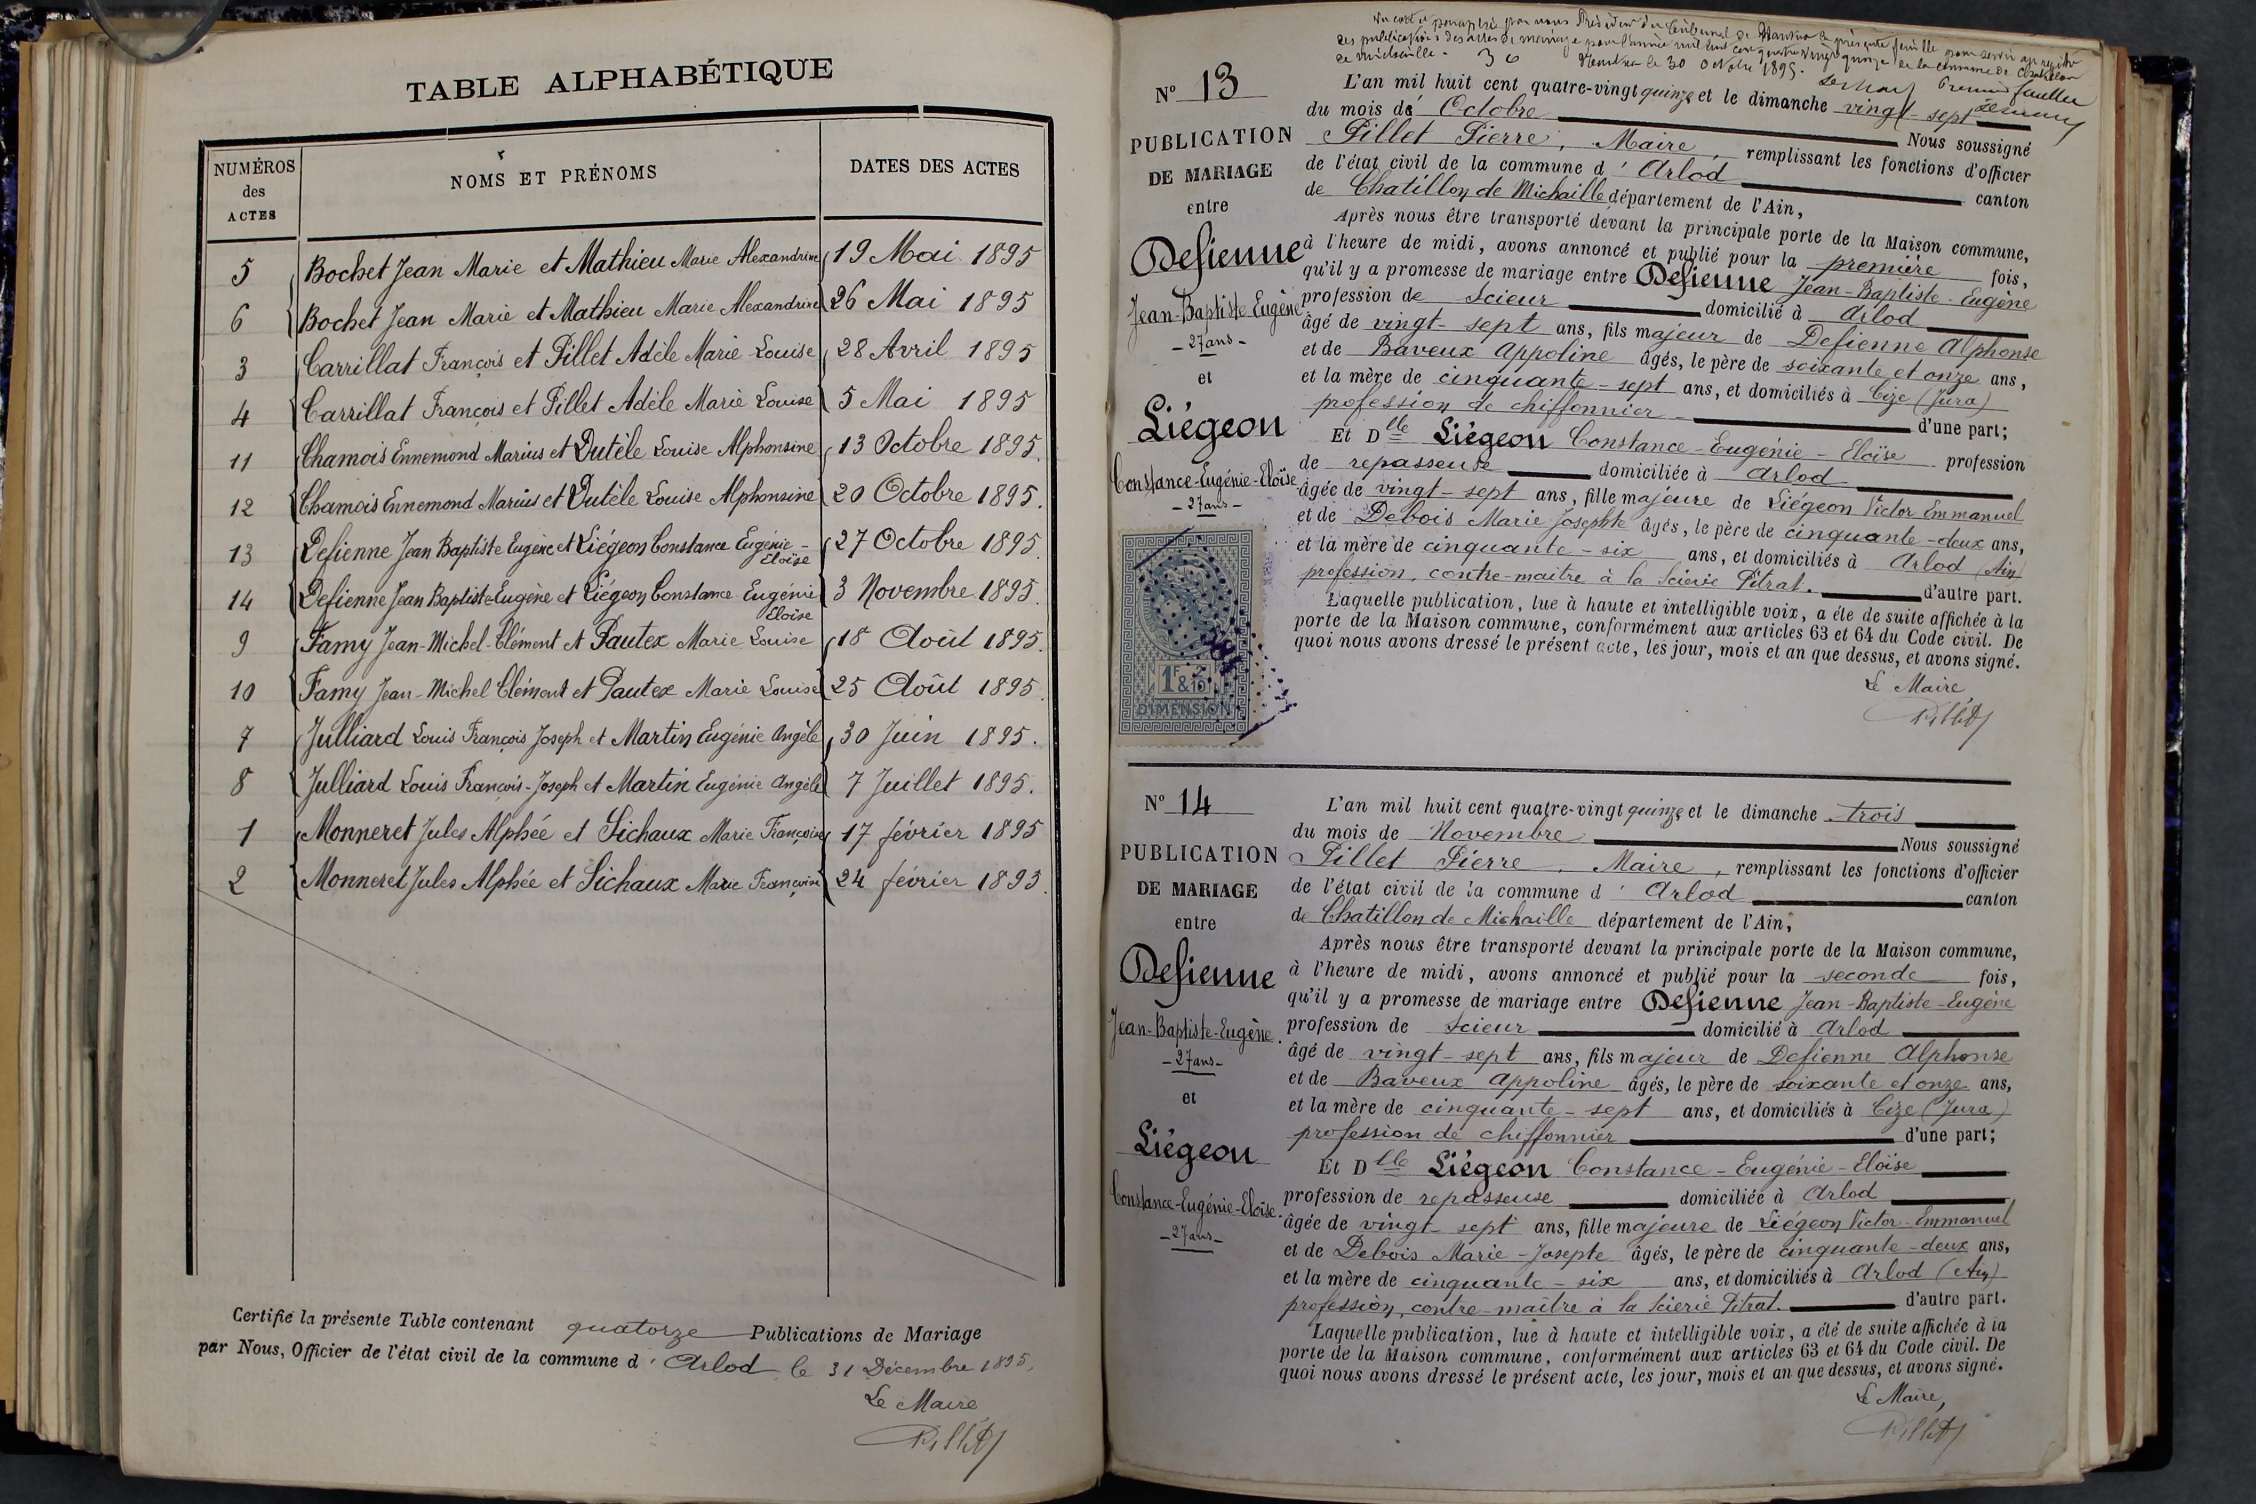 TABLE ALPHABÉTIQUE
NUMÉROS des ACTES | NOMS ET PRÉNOMS | DATES DES ACTES
5 Bochet Jean Marie et Mathieu Marie Alexandrine 19 Mai 1895
6 Bochet Jean Marie et Mathieu Marie Alexandrine 26 Mai 1895
3 Carrillat François et Pillet Adèle Marie Louise 28 Avril 1895
4 Carrillat François et Pillet Adèle Marie Louise 5 Mai 1895
11 Chamois Ennemond Marius et Dutèle Louise Alphonsine 13 Octobre 1895.
12 Chamois Ennemond Marius et Dutèle Louise Alphonsine 20 Octobre 1895.
13 Defienne Jean Baptiste Eugène et Liégeon Constance Eugénie - Eloïse 27 Octobre 1895.
14 Defienne Jean Baptiste Eugène et Liégeon Constance Eugénie Eloïse 3 Novembre 1895.
9 Famy Jean-Michel-Clément et Pautex Marie Louise 18 Août 1895.
10 Famy Jean-Michel Clément et Pautex Marie Louise 25 Août 1895.
7 Julliard Louis François Joseph et Martin Eugénie Angèle 30 Juin 1895.
8 Julliard Louis François-Joseph et Martin Eugénie Angèle 7 Juillet 1895.
1 Monneret Jules Alphée et Sichaux Marie Françoise 17 février 1895
2 Monneret Jules Alphée et Sichaux Marie Françoise 24 février 1895.
Certifié la présente Table contenant quatorze Publications de Mariage
par Nous, Officier de l'état civil de la commune d'Arlod, le 31 Décembre 1895,
Le Maire
Pillet
par nous Président du Tribunal de Nantua la présente feuille pour servir au registre
des publications des actes de mariage pour l'année mil huit cent quatre vingt quinze de la commune de Chatillon
de Michaille. Nantua le 30 Octobre 1895.
Nº 13
PUBLICATION
DE MARIAGE
entre
Defienne
Jean-Baptiste Eugène
- 27 ans -
et
Liégeon
Constance-Eugénie-Eloïse
- 27 ans -
DIMENSION
L'an mil huit cent quatre-vingt quinze et le dimanche vingt-sept
du mois de Octobre Nous soussigné
Pillet Pierre, Maire, remplissant les fonctions d'officier
de l'état civil de la commune d'Arlod canton
de Chatillon de Michaille département de l'Ain,
Après nous être transporté devant la principale porte de la Maison commune,
à l'heure de midi, avons annoncé et publié pour la première fois,
qu'il y a promesse de mariage entre Defienne Jean-Baptiste-Eugène
profession de Scieur domicilié à Arlod
âgé de vingt-sept ans, fils majeur de Defienne Alphonse
et de Baveux Appoline âgés, le père de soixante et onze ans,
et la mère de cinquante-sept ans, et domiciliés à Cize (Jura)
profession de chiffonnier d'une part;
Et Dlle Liégeon Constance-Eugénie-Eloïse profession
de repasseuse domiciliée à Arlod
âgée de vingt-sept ans, fille majeure de Liégeon Victor Emmanuel
et de Debois Marie Josephte âgés, le père de cinquante-deux ans,
et la mère de cinquante-six ans, et domiciliés à Arlod (Ain)
profession, contre-maître à la Scierie Pitrat. d'autre part.
Laquelle publication, lue à haute et intelligible voix, a été de suite affichée à la
porte de la Maison commune, conformément aux articles 63 et 64 du Code civil. De
quoi nous avons dressé le présent acte, les jour, mois et an que dessus, et avons signé.
Le Maire
Pillet
Nº 14
PUBLICATION
DE MARIAGE
entre
Defienne
Jean-Baptiste-Eugène.
- 27 ans -
et
Liégeon
Constance-Eugénie-Eloïse.
- 27 ans -
L'an mil huit cent quatre-vingt quinze et le dimanche trois
du mois de Novembre Nous soussigné
Pillet Pierre, Maire, remplissant les fonctions d'officier
de l'état civil de la commune d'Arlod canton
de Chatillon de Michaille département de l'Ain,
Après nous être transporté devant la principale porte de la Maison commune,
à l'heure de midi, avons annoncé et publié pour la seconde fois,
qu'il y a promesse de mariage entre Defienne Jean-Baptiste-Eugène
profession de Scieur domicilié à Arlod
âgé de vingt-sept ans, fils majeur de Defienne Alphonse
et de Baveux Appoline âgés, le père de soixante et onze ans,
et la mère de cinquante-sept ans, et domiciliés à Cize (Jura)
profession de chiffonnier d'une part;
Et Dlle Liégeon Constance-Eugénie-Eloïse
profession de repasseuse domiciliée à Arlod
âgée de vingt-sept ans, fille majeure de Liégeon Victor-Emmanuel
et de Debois Marie-Josepte âgés, le père de cinquante-deux ans,
et la mère de cinquante-six ans, et domiciliés à Arlod (Ain)
profession, contre-maître à la Scierie Pitrat. d'autre part.
Laquelle publication, lue à haute et intelligible voix, a été de suite affichée à la
porte de la Maison commune, conformément aux articles 63 et 64 du Code civil. De
quoi nous avons dressé le présent acte, les jour, mois et an que dessus, et avons signé.
Le Maire,
Pillet